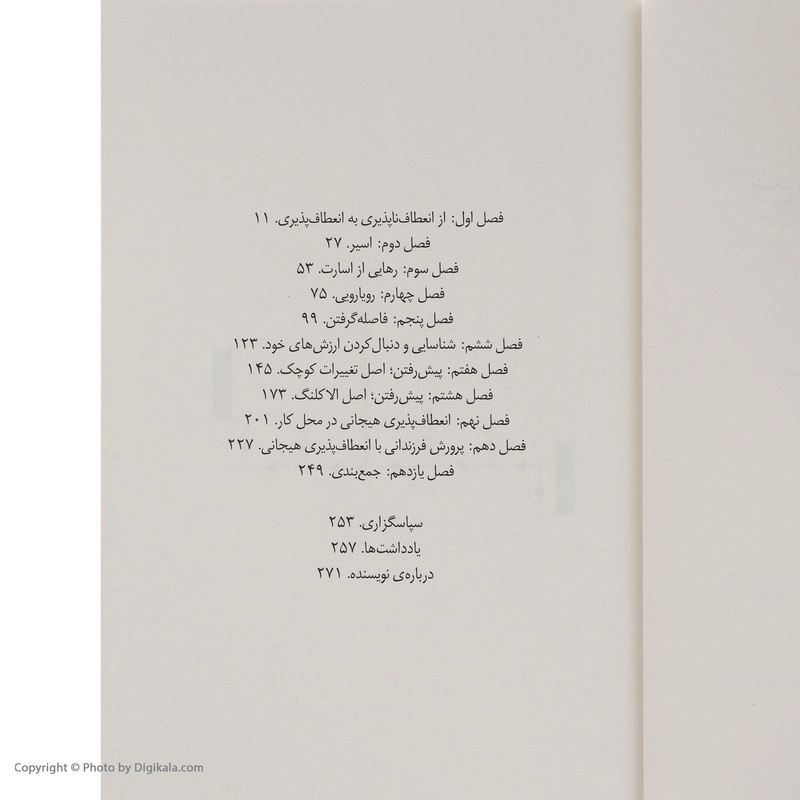 فصل اول: از انعطاف‌ناپذیری به انعطاف‌پذیری. ۱۱
فصل دوم: اسیر. ۲۷
فصل سوم: رهایی از اسارت. ۵۳
فصل چهارم: رویارویی. ۷۵
فصل پنجم: فاصله‌گرفتن. ۹۹
فصل ششم: شناسایی و دنبال‌کردن ارزش‌های خود. ۱۲۳
فصل هفتم: پیش‌رفتن؛ اصل تغییرات کوچک. ۱۴۵
فصل هشتم: پیش‌رفتن؛ اصل الاکلنگ. ۱۷۳
فصل نهم: انعطاف‌پذیری هیجانی در محل کار. ۲۰۱
فصل دهم: پرورش فرزندانی با انعطاف‌پذیری هیجانی. ۲۲۷
فصل یازدهم: جمع‌بندی. ۲۴۹
سپاسگزاری. ۲۵۳
یادداشت‌ها. ۲۵۷
درباره‌ی نویسنده. ۲۷۱
Copyright © Photo by Digikala.com